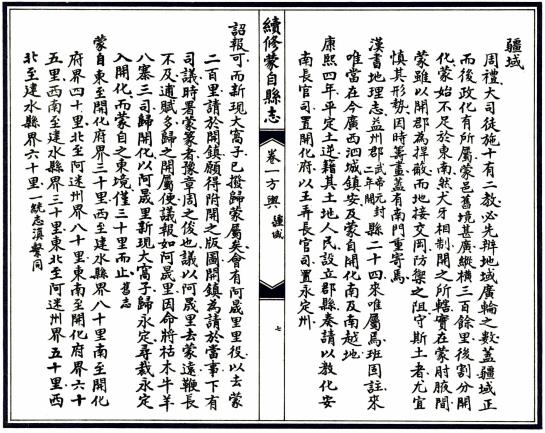 疆域
周禮大司徒施十有二教必先辨地域廣輪之數蓋疆域正
而後政化有所屬蒙邑舊境甚廣縱橫三百餘里後割分開
化蒙始不足於東南然犬牙相制開之所轄實在蒙肘腋間
蒙雖以開郡為捍蔽而地接交岡防禦之阻守斯土者尤宜
慎其形勢因時籌畫蓋有南門重寄焉
漢書地理志益州郡武帝元封二年開縣二十四來唯屬焉班固註來
唯當在今廣西泗城鎮安及蒙自開化南及南越地
康熙四年平定土逆籍其土地人民設立郡縣奏請以教化安
南長官司置開化府以王弄長官司置永定州
續修蒙自縣志
卷一方輿 疆域
七
詔報可而新現大窩子已撥歸蒙屬矣會有阿晟里里後以去蒙
二百里請於開鎮願得附開之版圖開鎮為請於當事下有
司議時署蒙篆者豫章周之俊也議以阿晟里去蒙遠鞭長
不及逋賦多歸之開屬便議報如阿晟里因命將枯木牛羊
八寨三司歸開化以阿晟里新現大窩子歸永定尋裁永定
入開化而蒙自之東境僅三十里而止舊志
蒙自東至開化府界三十里西至建水縣界八十里南至開化
府界四十里北至阿迷州界八十里東南至開化府界六十
五里西南至建水縣界三十里東北至阿迷州界五十里西
北至建水縣界六十里一統志滇繫同